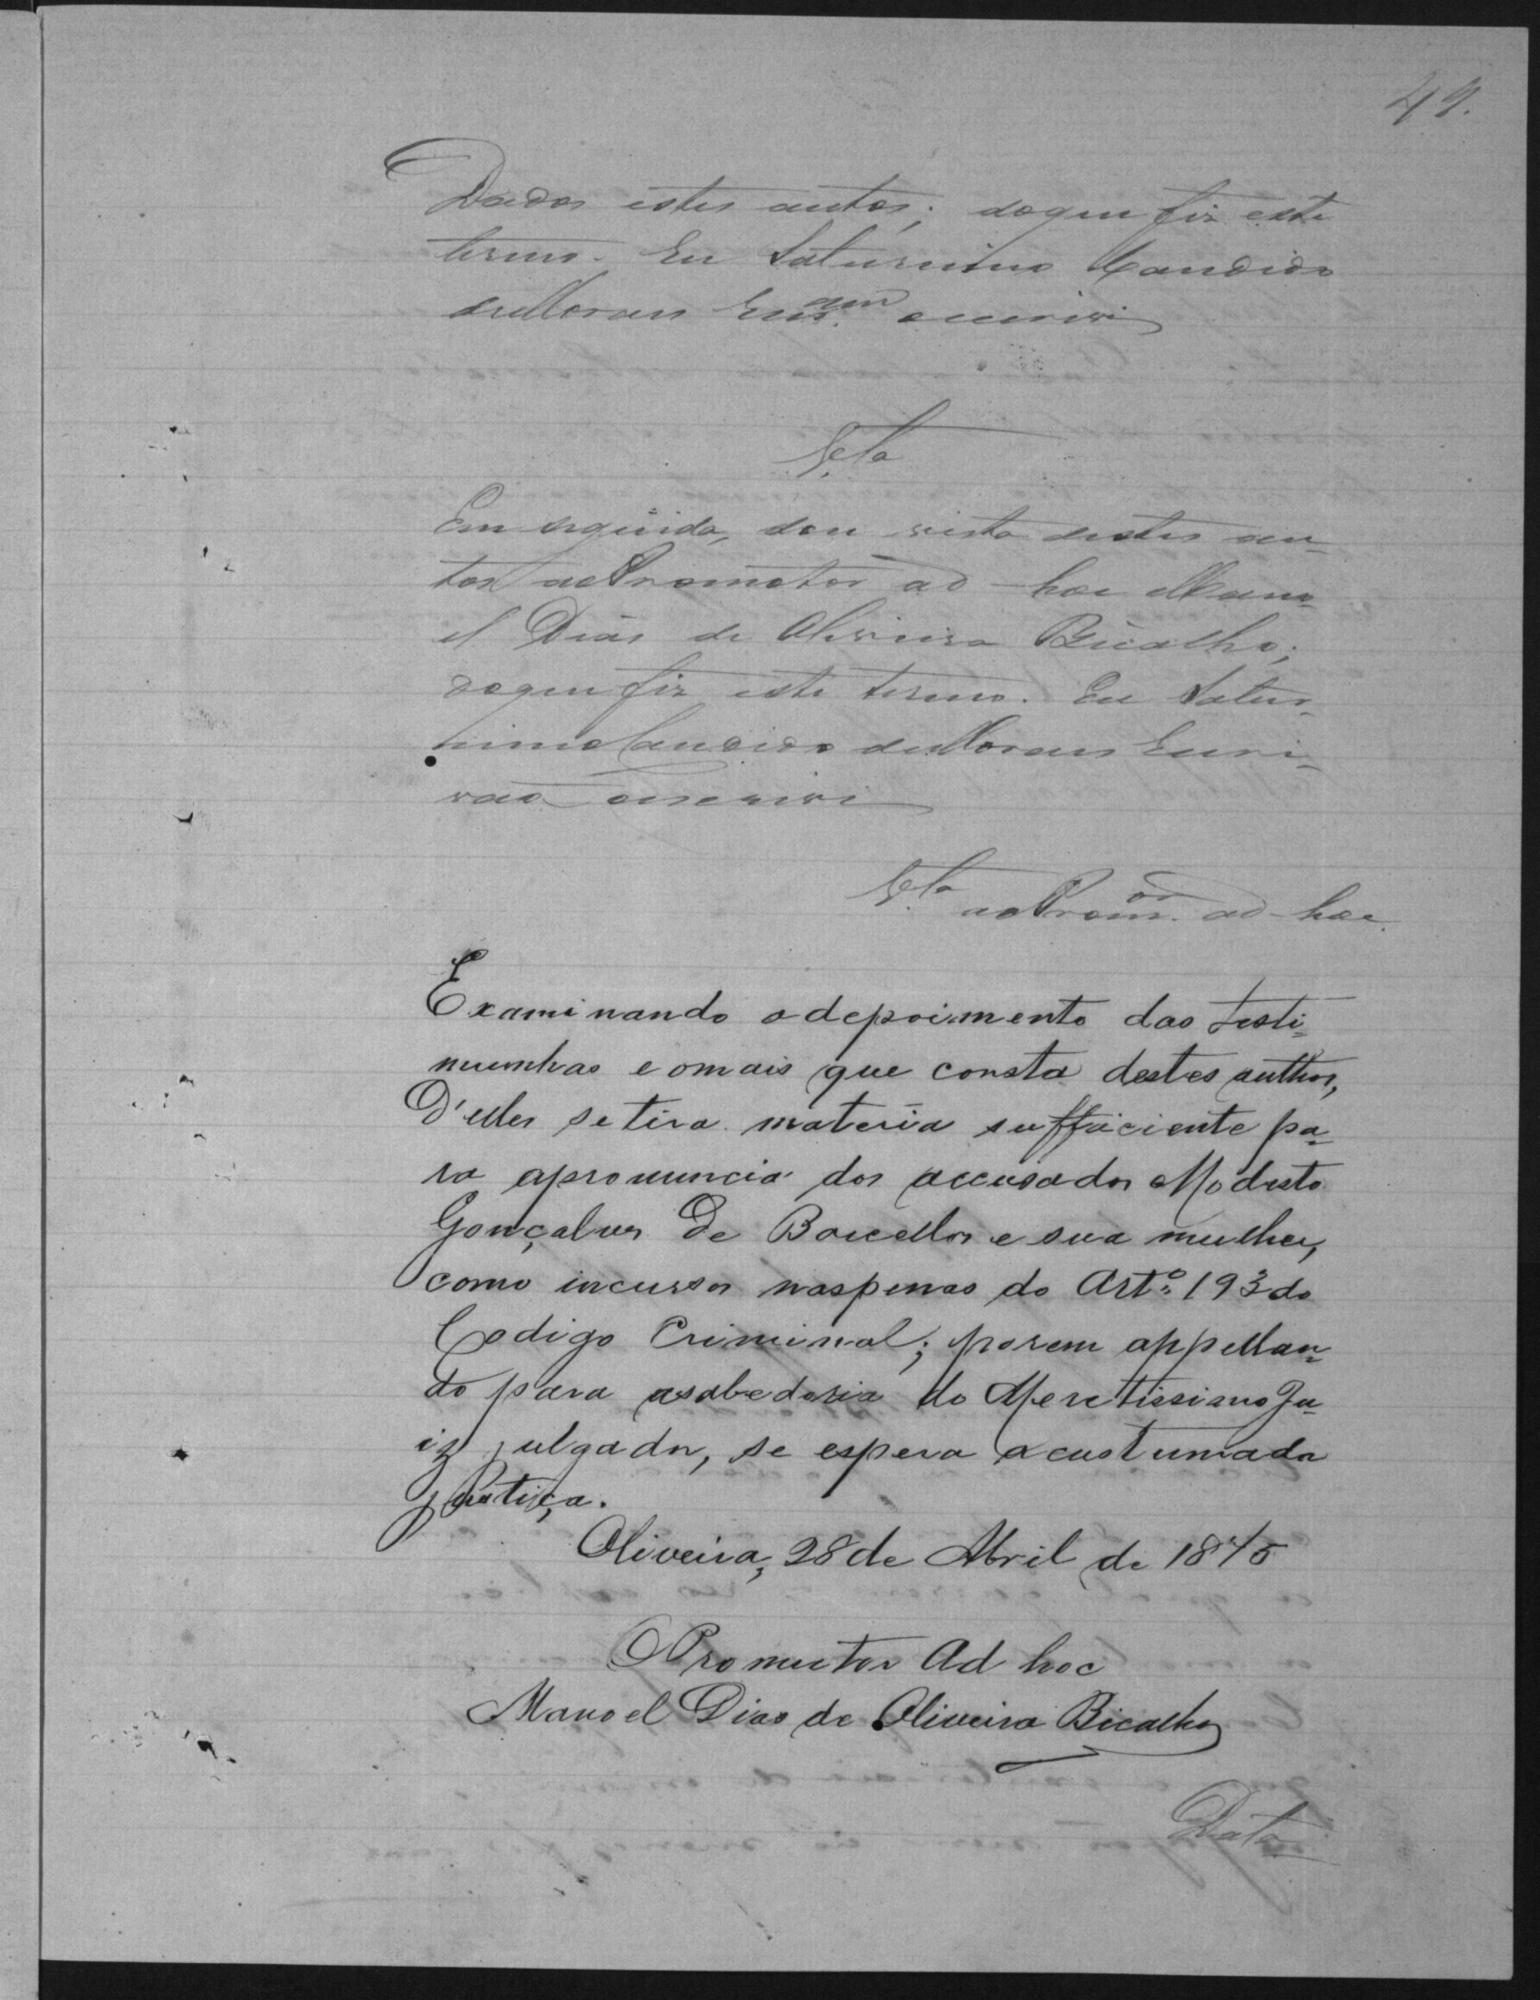 49.
Dados estes autos; do que fiz este
termo. Eu Saturnino Candido
de Moraes Escr.am o escrivi
V.ta
Em seguida, dou vista destes au-
tos ao Promotor ad-hoc Mano-
el Dias de Oliveira Bicalho;
do que fiz este termo. Eu Satur-
nino Candido de Moraes Escri-
vão o escrivi
V.ta ao Prom.or ad-hoc.
Examinando o depoimento das testi-
munhas e o mais que consta destes authos,
D'elles se tira materia sufficiente pa-
ra a pronuncia dos accusados Modesto
Gonçalves De Barcellos e sua mulher,
como incursos nas penas do Art.º 193 do
Codigo Criminal; porem appellan-
do para a sabedoria do Meretissimo Ju-
iz julgador, se espera a custumada
justiça.
Oliveira, 28 de Abril de 1875
O Promutor Ad hoc
Manoel Dias de Oliveira Bicalho
Data